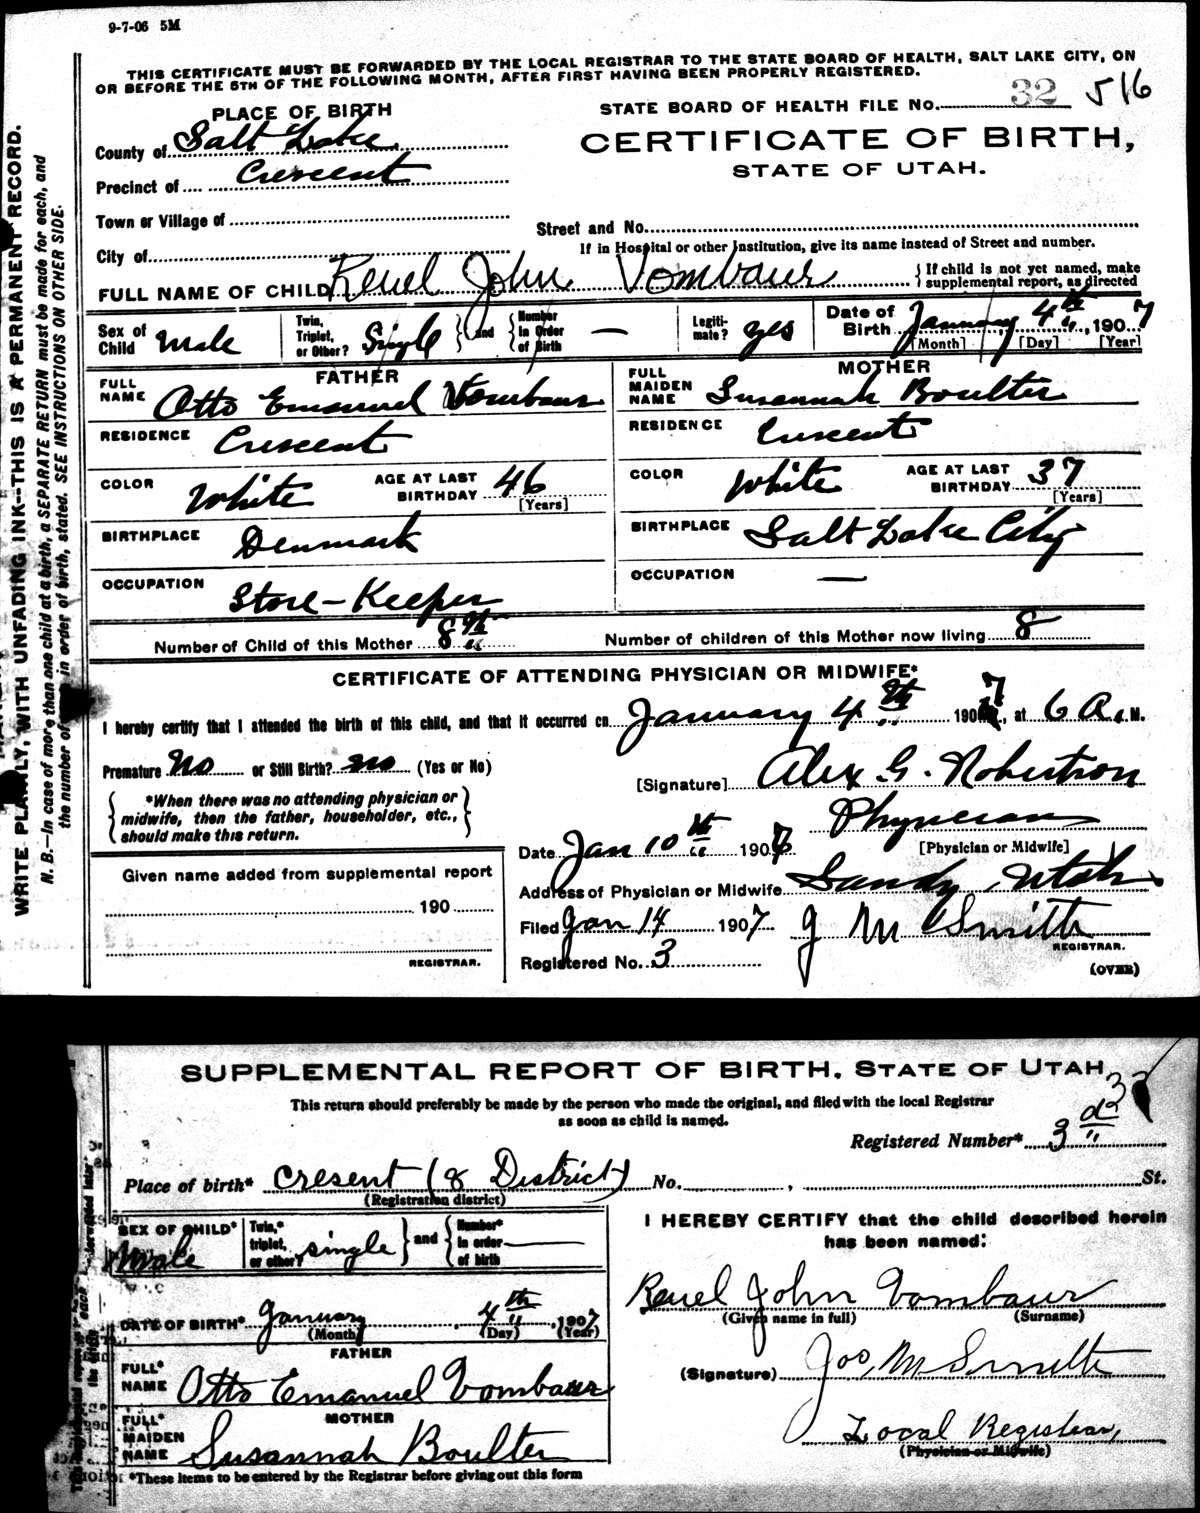 9-7-06 5M
THIS CERTIFICATE MUST BE FORWARDED BY THE LOCAL REGISTRAR TO THE STATE BOARD OF HEALTH, SALT LAKE CITY, ON
OR BEFORE THE 5TH OF THE FOLLOWING MONTH, AFTER FIRST HAVING BEEN PROPERLY REGISTERED.
STATE BOARD OF HEALTH FILE No. 32 516
PLACE OF BIRTH
County of Salt Lake
Precinct of Crescent
Town or Village of
City of
CERTIFICATE OF BIRTH,
STATE OF UTAH.
Street and No.
If in Hospital or other Institution, give its name instead of Street and number.
FULL NAME OF CHILD Reuel John Vombaur
{ If child is not yet named, make
supplemental report, as directed
Sex of Child Male
Twin, Triplet, or Other? Single } and { Number in Order of Birth —
Legitimate? yes
Date of Birth January 4th, 1907
[Month] [Day] [Year]
FATHER
FULL NAME Otto Emanuel Vombaur
RESIDENCE Crescent
COLOR White AGE AT LAST BIRTHDAY 46
[Years]
BIRTHPLACE Denmark
OCCUPATION Store-Keeper
MOTHER
FULL MAIDEN NAME Susannah Boulter
RESIDENCE Crescent
COLOR White AGE AT LAST BIRTHDAY 37
[Years]
BIRTHPLACE Salt Lake City
OCCUPATION —
Number of Child of this Mother 8th Number of children of this Mother now living 8
CERTIFICATE OF ATTENDING PHYSICIAN OR MIDWIFE*
I hereby certify that I attended the birth of this child, and that it occurred on January 4th 1907, at 6 A.M.
Premature No or Still Birth? no (Yes or No)
{ *When there was no attending physician or
midwife, then the father, householder, etc.,
should make this return. }
[Signature] Alex G. Robertson
Physician
[Physician or Midwife]
Date Jan 10th 1907
Address of Physician or Midwife Sandy, Utah
Filed Jan 14 1907 J M Smith
REGISTRAR.
Registered No. 3
(OVER)
Given name added from supplemental report
190
REGISTRAR.
WRITE PLAINLY, WITH UNFADING INK--THIS IS A PERMANENT RECORD.
N. B.—In case of more than one child at a birth, a SEPARATE RETURN must be made for each, and
the number of in order of birth, stated. SEE INSTRUCTIONS ON OTHER SIDE.
SUPPLEMENTAL REPORT OF BIRTH, STATE OF UTAH
32
This return should preferably be made by the person who made the original, and filed with the local Registrar
as soon as child is named.
Registered Number* 3d
Place of birth* Cresent (8 District) No. , St.
(Registration district)
SEX OF CHILD* Male
Twin,* triplet, or other? single } and { Number* in order of birth
DATE OF BIRTH* January 4th, 1907
(Month) (Day) (Year)
FATHER
FULL* NAME Otto Emanuel Vombaur
MOTHER
FULL* MAIDEN NAME Susannah Boulter
*These items to be entered by the Registrar before giving out this form
I HEREBY CERTIFY that the child described herein
has been named:
Reuel John Vombaur
(Given name in full) (Surname)
(Signature) Jos. M Smith
Local Registrar,
(Physician or Midwife)